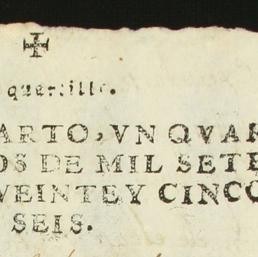 quartillo.
ARTO, VN QVAR
OS DE MIL SETE
VEINTE Y CINCO
SEIS.